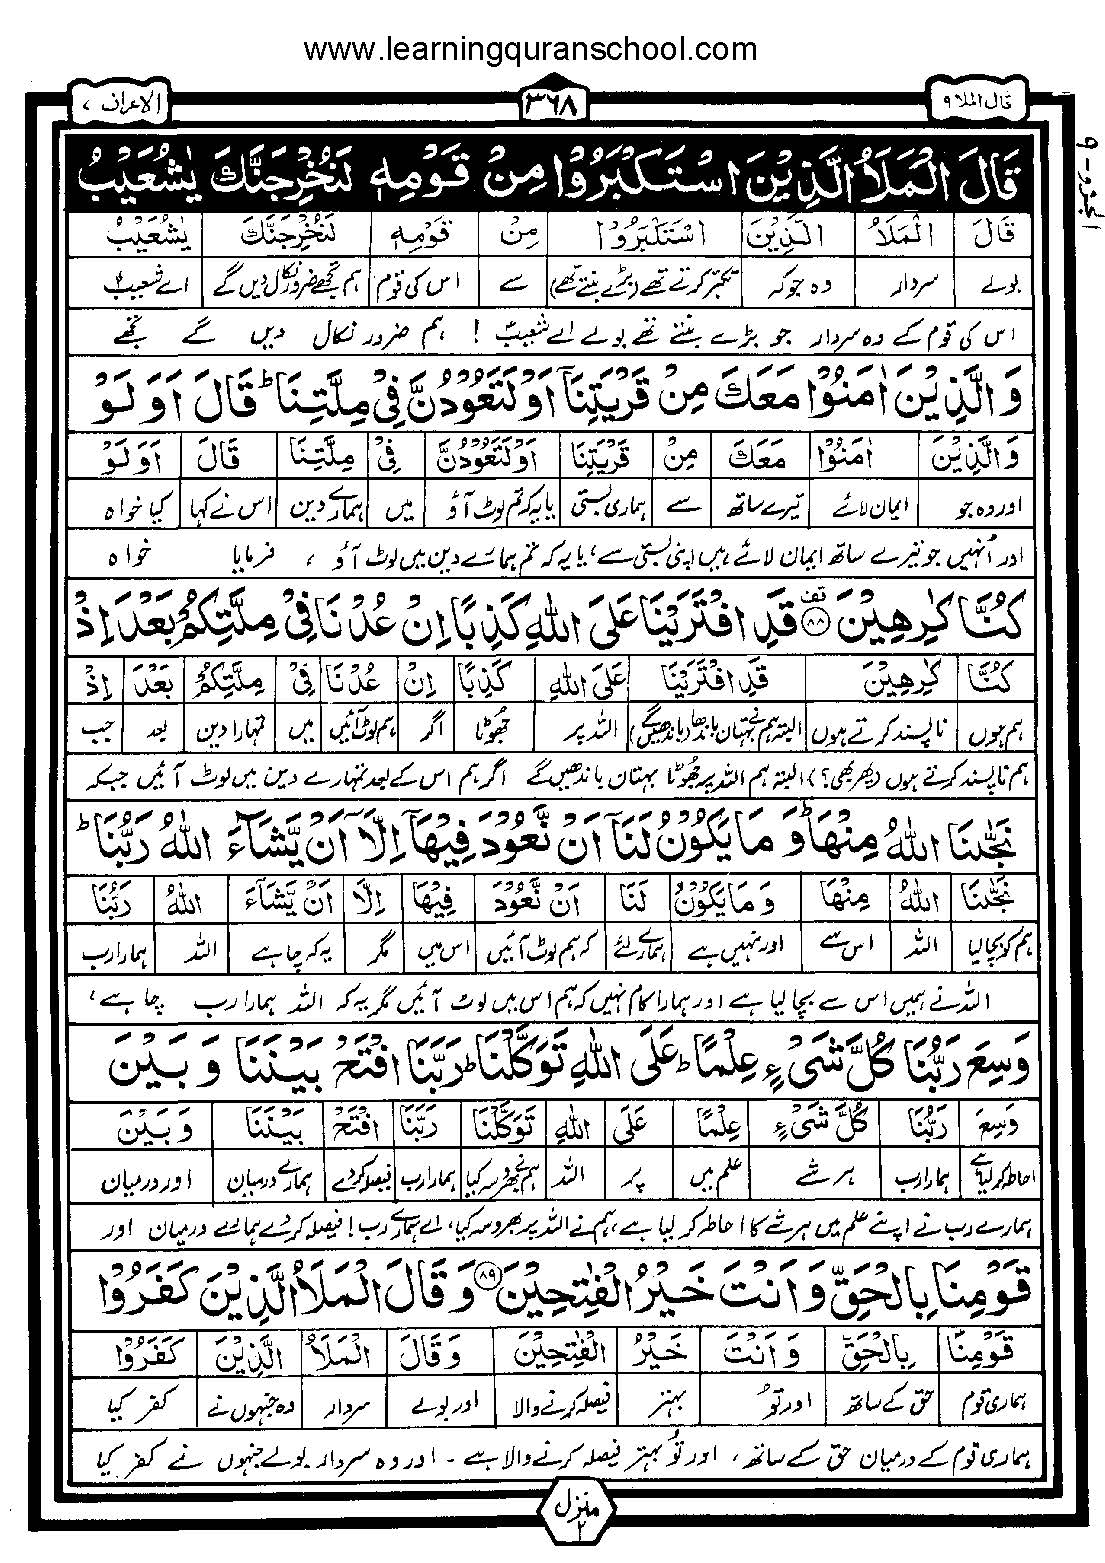 www.learningquranschool.com
قال الملا ۹
۳۶۸
الاعراف ۷
الجزء - ۹
قَالَ الْمَلَاُ الَّذِيْنَ اسْتَكْبَرُوْا مِنْ قَوْمِهٖ لَنُخْرِجَنَّكَ يٰشُعَيْبُ
قَالَ الْمَلَاُ الَّذِيْنَ اسْتَكْبَرُوْا مِنْ قَوْمِهٖ لَنُخْرِجَنَّكَ يٰشُعَيْبُ
بولے سردار وہ جو کہ تکبر کرتے تھے (بڑے بنتے تھے) سے اس کی قوم ہم تجھے ضرور نکال دیں گے اے شعیبؑ
اس کی قوم کے وہ سردار جو بڑے بنتے تھے بولے اے شعیبؑ ! ہم ضرور نکال دیں گے تجھے
وَالَّذِيْنَ اٰمَنُوْا مَعَكَ مِنْ قَرْيَتِنَآ اَوْ لَتَعُوْدُنَّ فِيْ مِلَّتِنَا ؕ قَالَ اَوَلَوْ
وَالَّذِيْنَ اٰمَنُوْا مَعَكَ مِنْ قَرْيَتِنَا اَوْ لَتَعُوْدُنَّ فِيْ مِلَّتِنَا قَالَ اَوَلَوْ
اور وہ جو ایمان لائے تیرے ساتھ سے ہماری بستی یا یہ کہ تم لوٹ آؤ میں ہمارے دین اس نے کہا کیا خواہ
اور اُنہیں جو تیرے ساتھ ایمان لائے ہیں اپنی بستی سے، یا یہ کہ تم ہمارے دین میں لوٹ آؤ ، فرمایا خواہ
كُنَّا كٰرِهِيْنَ ۸۸ قف قَدِ افْتَرَيْنَا عَلَى اللّٰهِ كَذِبًا اِنْ عُدْنَا فِيْ مِلَّتِكُمْ بَعْدَ اِذْ
كُنَّا كٰرِهِيْنَ قَدِ افْتَرَيْنَا عَلَى اللّٰهِ كَذِبًا اِنْ عُدْنَا فِيْ مِلَّتِكُمْ بَعْدَ اِذْ
ہم ہوں ناپسند کرتے ہوں البتہ ہم نے بہتان باندھا (باندھیں گے) اللہ پر جھوٹا اگر ہم لوٹ آئیں میں تمہارا دین بعد جب
ہم ناپسند کرتے ہوں (پھر بھی؟) البتہ ہم اللہ پر جھُوٹا بہتان باندھیں گے اگر ہم اس کے بعد تمہارے دین میں لوٹ آئیں جبکہ
نَجّٰىنَا اللّٰهُ مِنْهَا ؕ وَمَا يَكُوْنُ لَنَآ اَنْ نَّعُوْدَ فِيْهَآ اِلَّآ اَنْ يَّشَآءَ اللّٰهُ رَبُّنَا ؕ
نَجّٰىنَا اللّٰهُ مِنْهَا وَمَا يَكُوْنُ لَنَا اَنْ نَّعُوْدَ فِيْهَا اِلَّا اَنْ يَّشَآءَ اللّٰهُ رَبُّنَا
ہم کو بچا لیا اللہ اس سے اور نہیں ہے ہمارے لئے کہ ہم لوٹ آئیں اس میں مگر یہ کہ چاہے اللہ ہمارا رب
اللہ نے ہمیں اس سے بچا لیا ہے اور ہمارا کام نہیں کہ ہم اس میں لوٹ آئیں مگر یہ کہ اللہ ہمارا رب چاہے،
وَسِعَ رَبُّنَا كُلَّ شَيْءٍ عِلْمًا ؕ عَلَى اللّٰهِ تَوَكَّلْنَا ؕ رَبَّنَا افْتَحْ بَيْنَنَا وَبَيْنَ
وَسِعَ رَبُّنَا كُلَّ شَيْءٍ عِلْمًا عَلَى اللّٰهِ تَوَكَّلْنَا رَبَّنَا افْتَحْ بَيْنَنَا وَبَيْنَ
احاطہ کر لیا ہے ہمارا رب ہر شے علم میں پر اللہ ہم نے بھروسہ کیا ہمارا رب فیصلہ کر دے ہمارے درمیان اور درمیان
ہمارے رب نے اپنے علم میں ہر شے کا احاطہ کر لیا ہے، ہم نے اللہ پر بھروسہ کیا، اے ہمارے رب! فیصلہ کر دے ہمارے درمیان اور
قَوْمِنَا بِالْحَقِّ وَاَنْتَ خَيْرُ الْفٰتِحِيْنَ ۸۹ وَقَالَ الْمَلَاُ الَّذِيْنَ كَفَرُوْا
قَوْمِنَا بِالْحَقِّ وَاَنْتَ خَيْرُ الْفٰتِحِيْنَ وَقَالَ الْمَلَاُ الَّذِيْنَ كَفَرُوْا
ہماری قوم حق کے ساتھ اور تُو بہتر فیصلہ کرنے والا اور بولے سردار وہ جنہوں نے کفر کیا
ہماری قوم کے درمیان حق کے ساتھ، اور تُو بہتر فیصلہ کرنے والا ہے - اور وہ سردار بولے جنہوں نے کفر کیا
منزل ۲